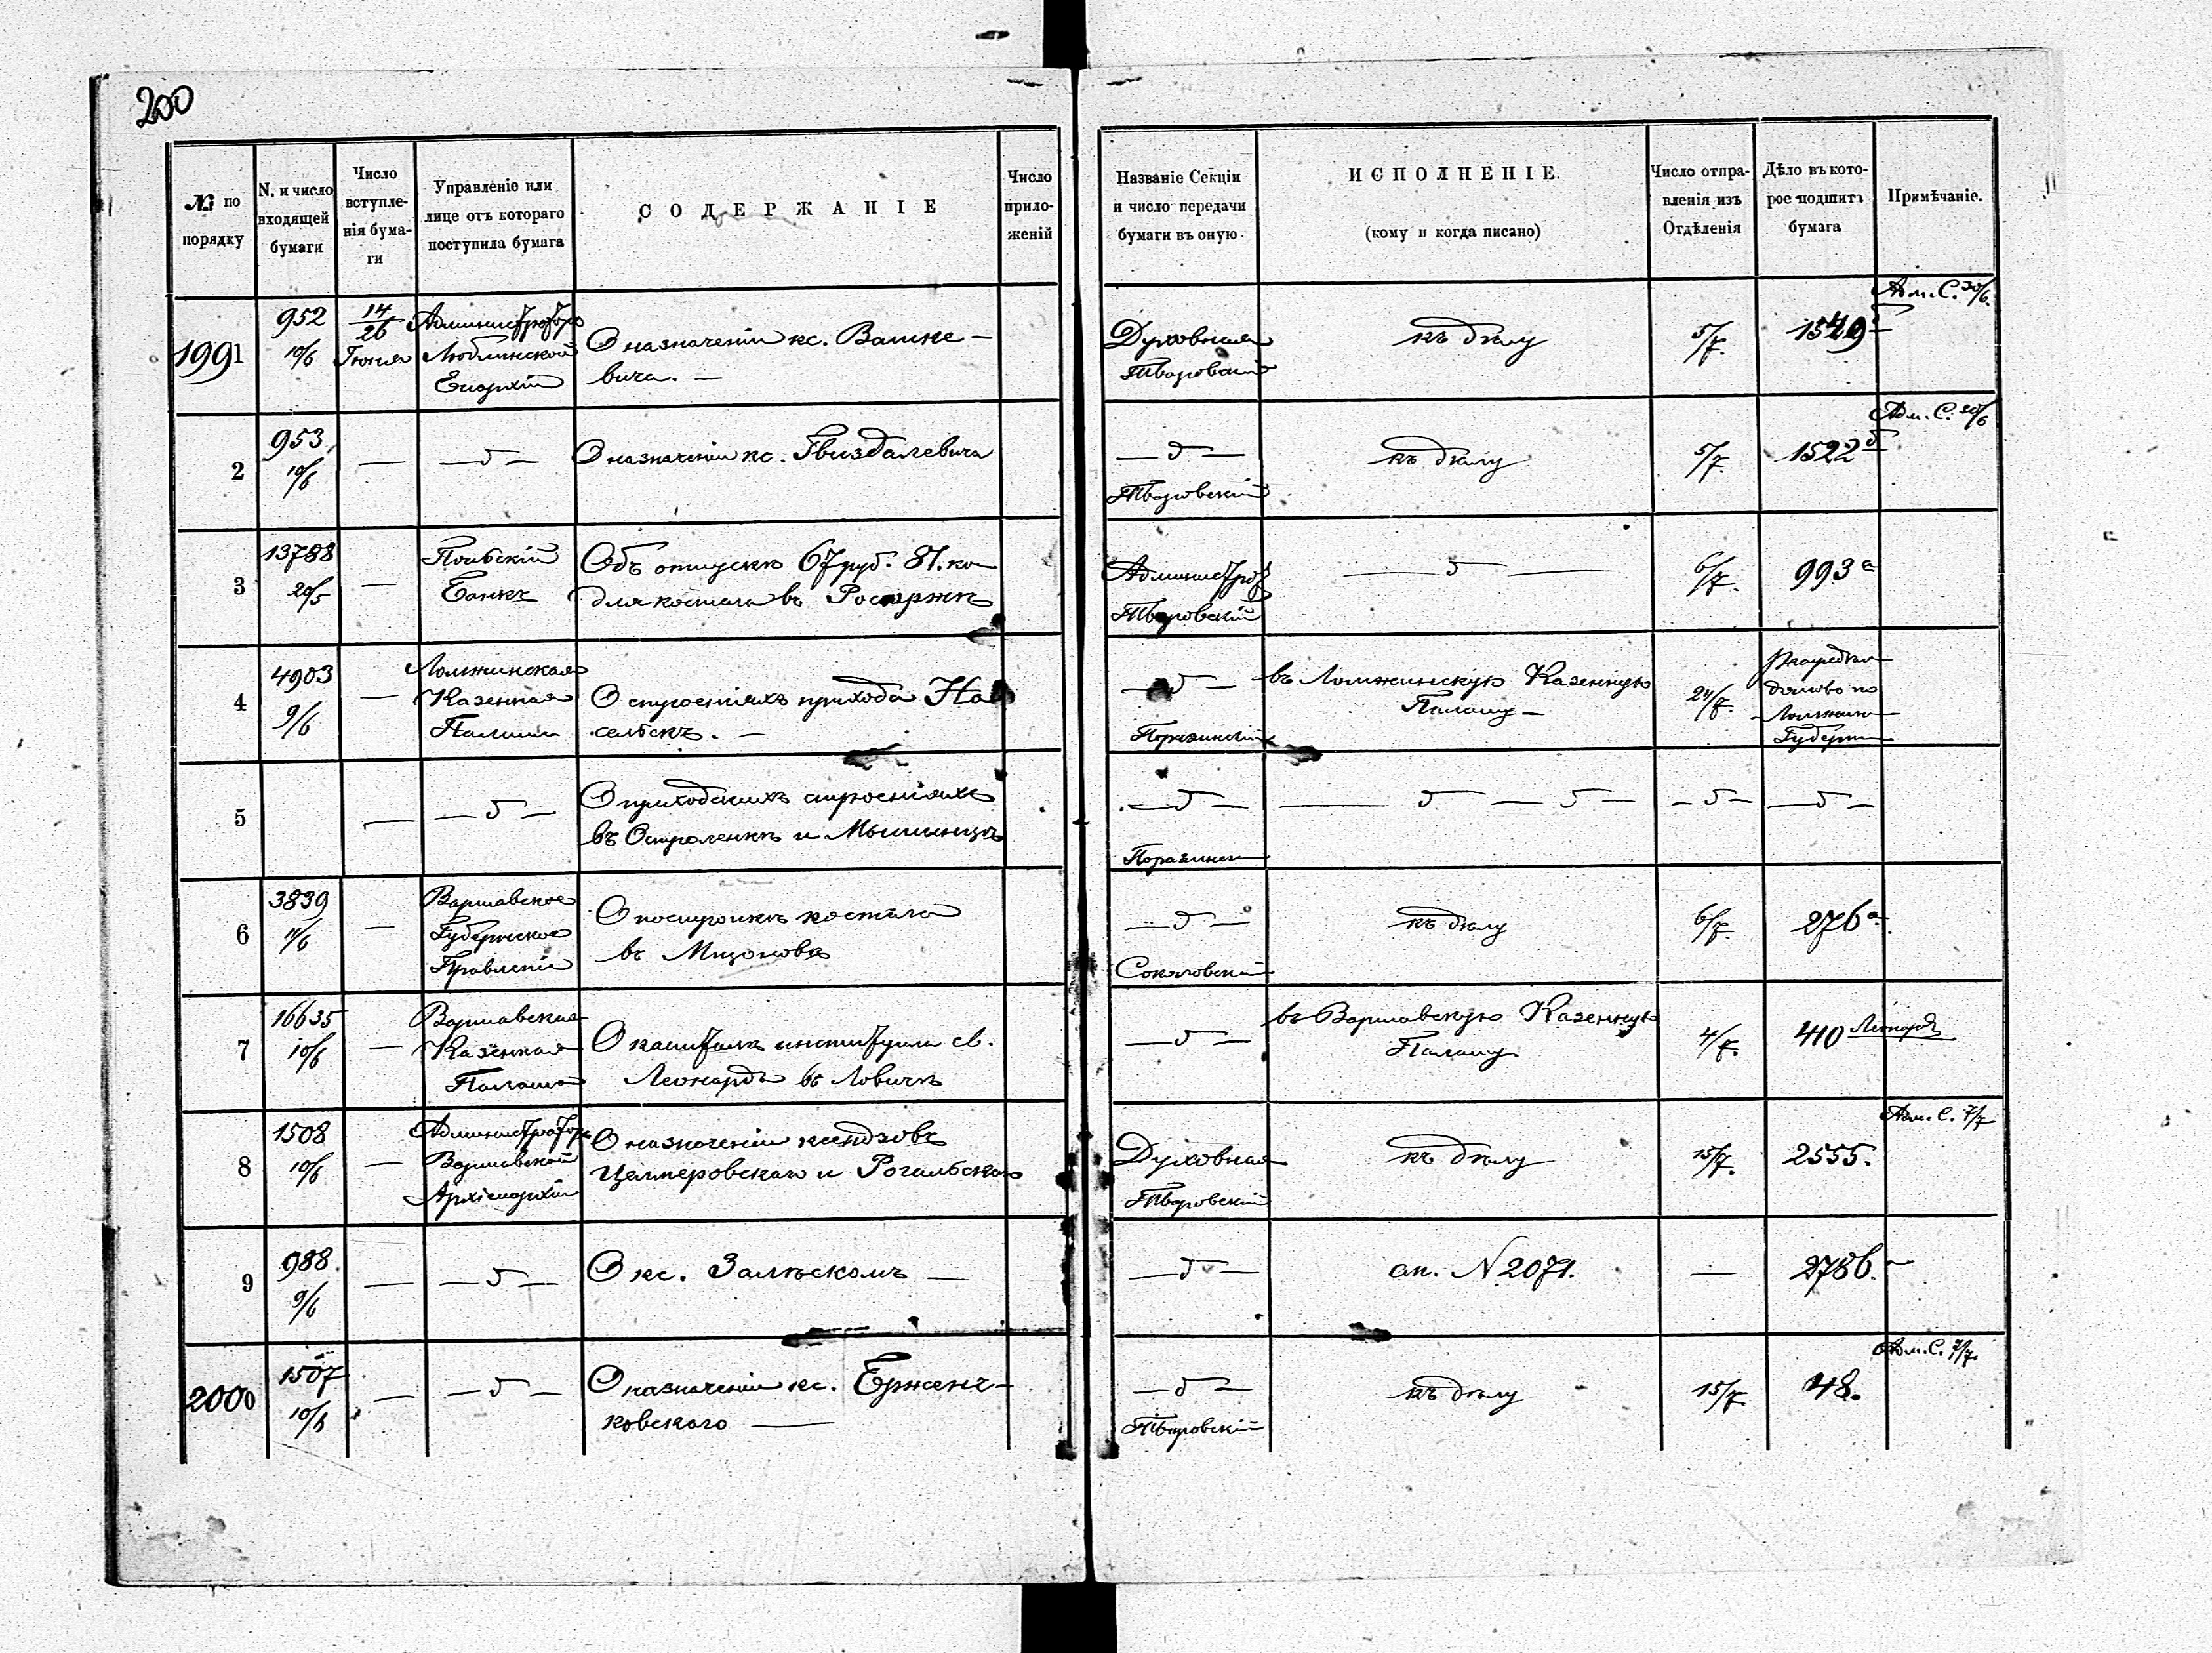 200
№ по порядку
N. и число входящей бумаги
Число вступленія бумаги
Управленіе или лице отъ котораго поступила бумага
СОДЕРЖАНІЕ
Число приложеній
Названіе Секціи и число передачи бумаги въ оную
ИСПОЛНЕНІЕ.
(кому и когда писано)
Число отправленія изъ Отдѣленія
Дѣло въ которое подшита бумага
Примѣчаніе.
1991
952
10/6
14/26
Іюня
Администраторъ
Люблинской
Епархіи
О назначеніи кс. Вашке-
вича. —
Духовная
Творовскій
къ дѣлу
5/7.
Адм. С. 30/6.
2
953
10/6
—
— „ —
О назначеніи кс. Гвиздалевича
— „ —
Творовскій
къ дѣлу
5/7.
1522
Адм. С. 30/6
3
13788
20/5
—
Польскій
Банкъ
Объ отпускѣ 67 руб. 81. ко
для костела въ
Администрат
Творовскій
— „ —
6/7.
993 а
4
4903
9/6
—
Ломжинская
Казенная
Палата
О строеніяхъ прихода На
сельскъ. —
— „ —
въ Ломжинскую Казенную
Палату —
по
Губерніи
5
—
— „ —
О приходскихъ строеніяхъ
въ Остроленкѣ и Мышинцѣ
— „ —
— „ — „ —
— „ —
— „ —
6
3839
11/6
—
Варшавское
Губернское
Правленіе
О постройкѣ костела
въ Мщоновѣ
— „ —
Соколовскій
къ дѣлу
6/7.
276 а
7
16635
10/6
—
Варшавская
Казенная
Палата
О капиталѣ института св.
Леонарда въ Ловичѣ
— „ —
въ Варшавскую Казенную
Палату.
4/7.
410
8
1508
10/6
—
Администраторъ
Варшавской
Архіепархіи
О назначеніи ксендзовъ
Целмеровскаго и Рогальскаго
Духовная
Творовскій
къ дѣлу
15/7.
2555.
Адм. С. 7/7
9
988.
9/6
—
— „ —
О кс. Залѣскомъ —
— „ —
ап. N 2071.
—
10
2000
1507
10/6
—
— „ —
О назначеніи кс. Ержен-
ковскаго —
— „ —
Творовскій
къ дѣлу
15/7
48.
Адм. С. 7/7.